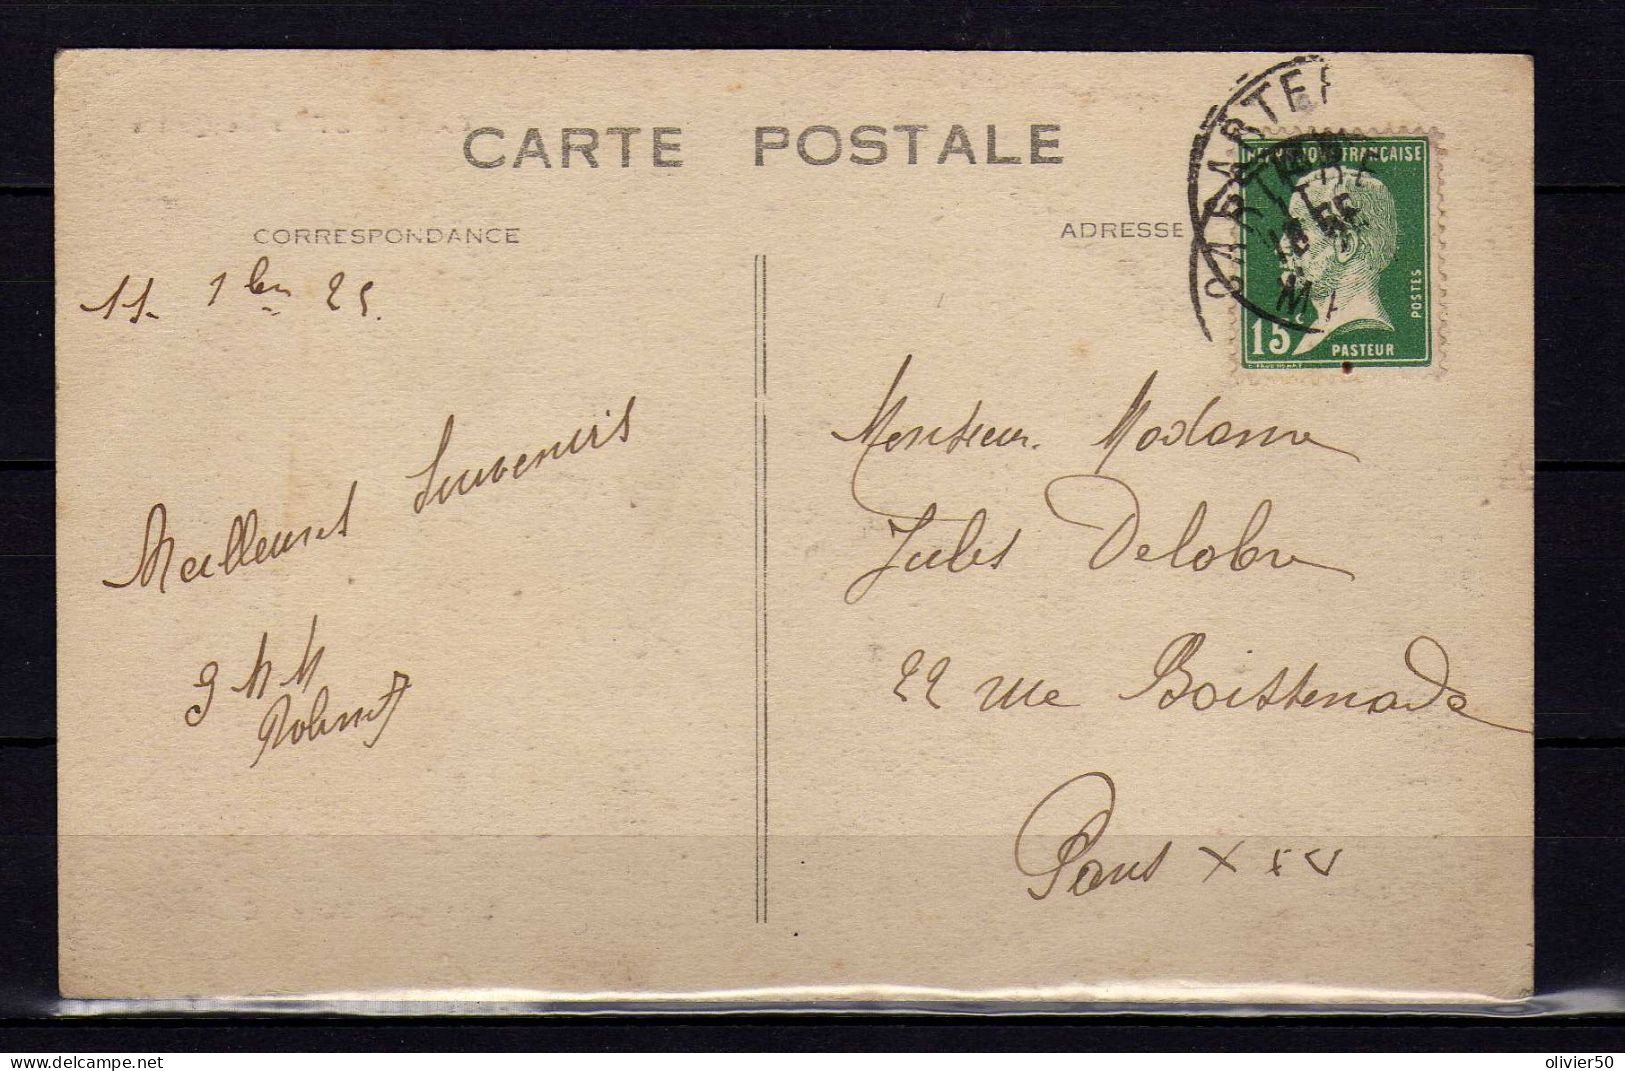 CARTE POSTALE
CORRESPONDANCE
ADRESSE
RÉPUBLIQUE FRANÇAISE
POSTES
15c
PASTEUR
11. 7bre 25.
Meilleurs Souvenirs
Monsieur. Madame
Jules Delobre
22 rue Boissonade
Paris XIV
delcampe.net
olivier50